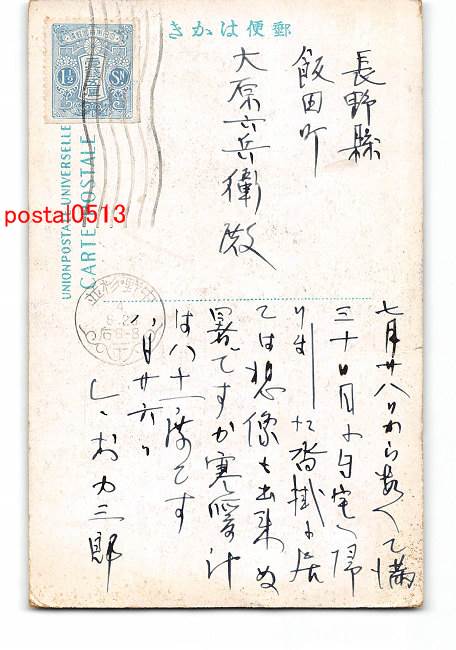 きかは便郵
1½ SN
UNION POSTALE UNIVERSELLE
CARTE POSTALE
postal0513
長野縣
飯田町
大原六兵衛殿
七月廿八日から数へて満
三十日目に自宅へ帰
りました沓掛に居
ては想像も出来ぬ
暑いですか寒暖計
は八十一度です
八月廿六日
力三郎